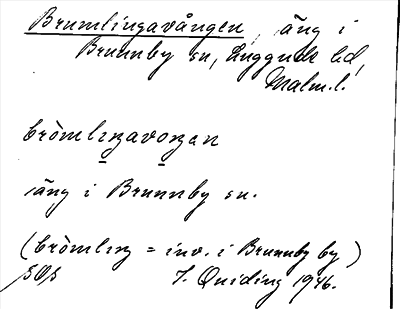 Brumlingavången, äng i
Brunnby sn, Luggude hd,
Malm. l.
bròmlıŋavoŋen
äng i Brunnby sn.
(bròmlıŋ = inv. i Brunnby by)
J. Quiding 1946.